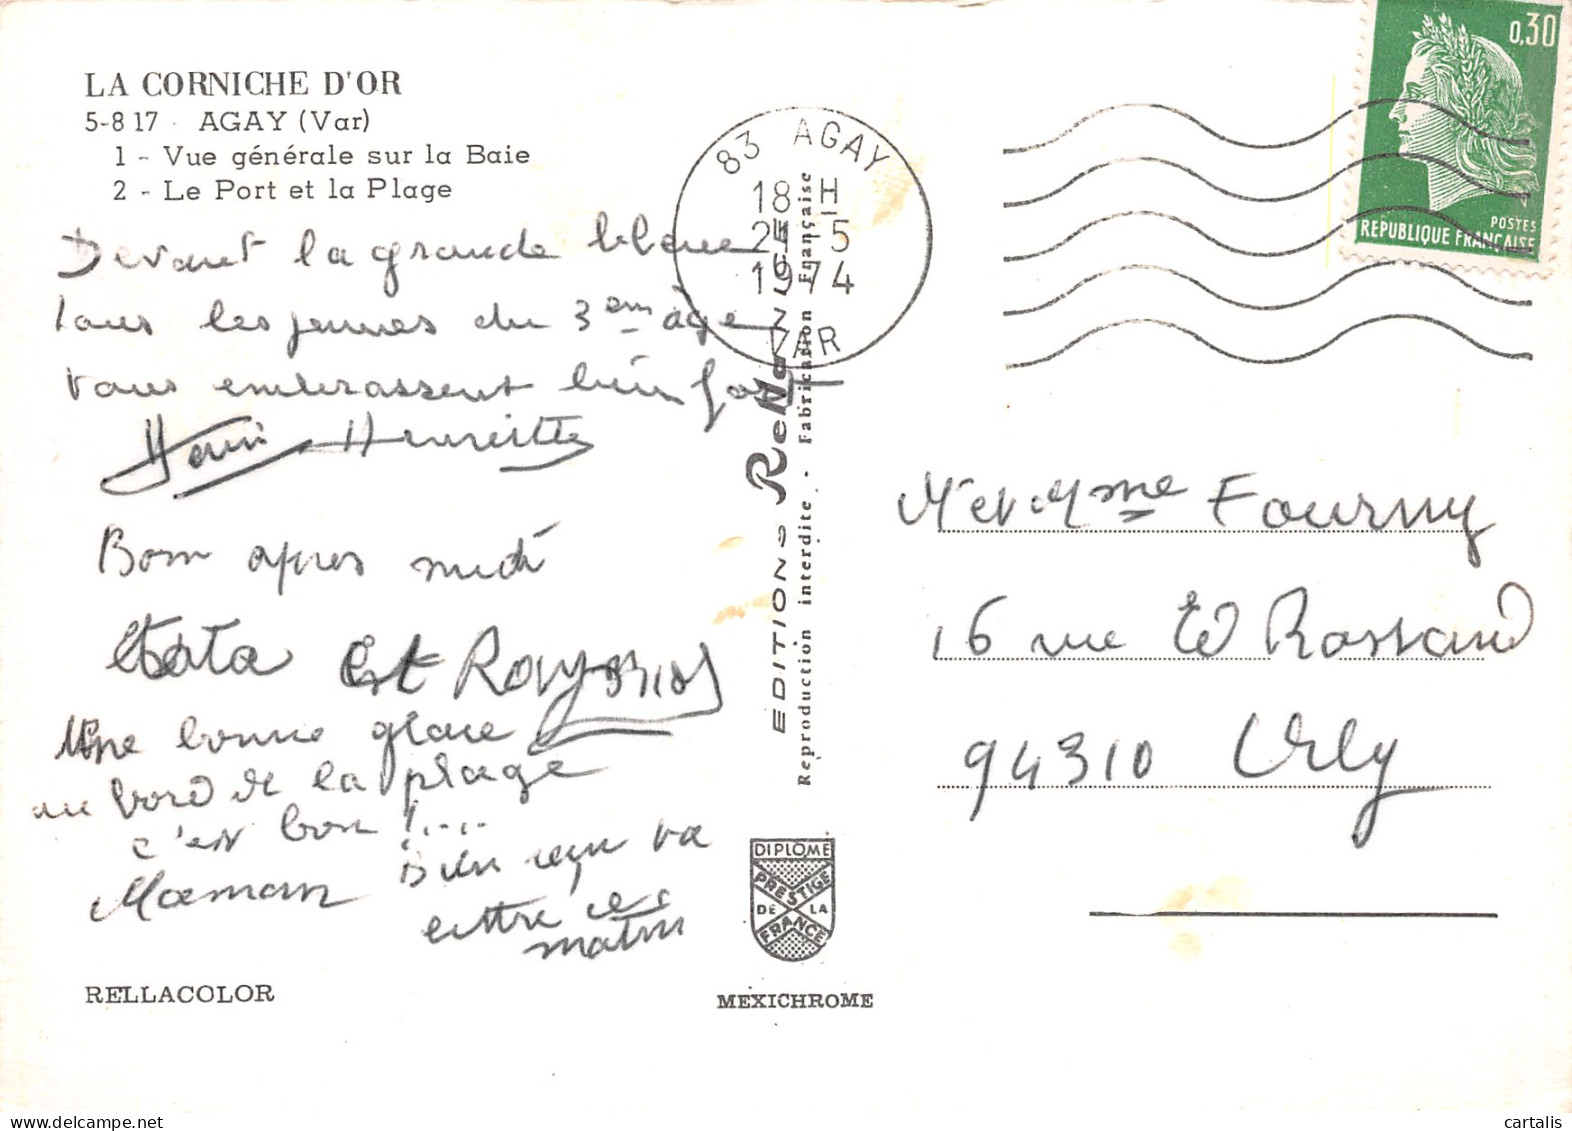 LA CORNICHE D'OR
5-8 17 - AGAY (Var)
1 - Vue générale sur la Baie
2 - Le Port et la Plage
Devant la grande bleue
tous les jeunes du 3em age
vous embrassent bien fort
Henri Henriette
Bon apres midi
tata et Raymond
Une bonne glace
au bord de la plage
c'est bon !....
Maman Bien reçu ta
lettre ce
matin
RELLACOLOR
83 AGAY
18 H
21-5
1974
VAR
EDITIONS Rella NICE
Reproduction interdite - Fabrication Française
DIPLOME
PRESTIGE
DE LA
FRANCE
MEXICHROME
0,30
POSTES
REPUBLIQUE FRANÇAISE
Mr et Mme Fourny
16 rue Ed Rostand
94310 Orly
cartalis.com